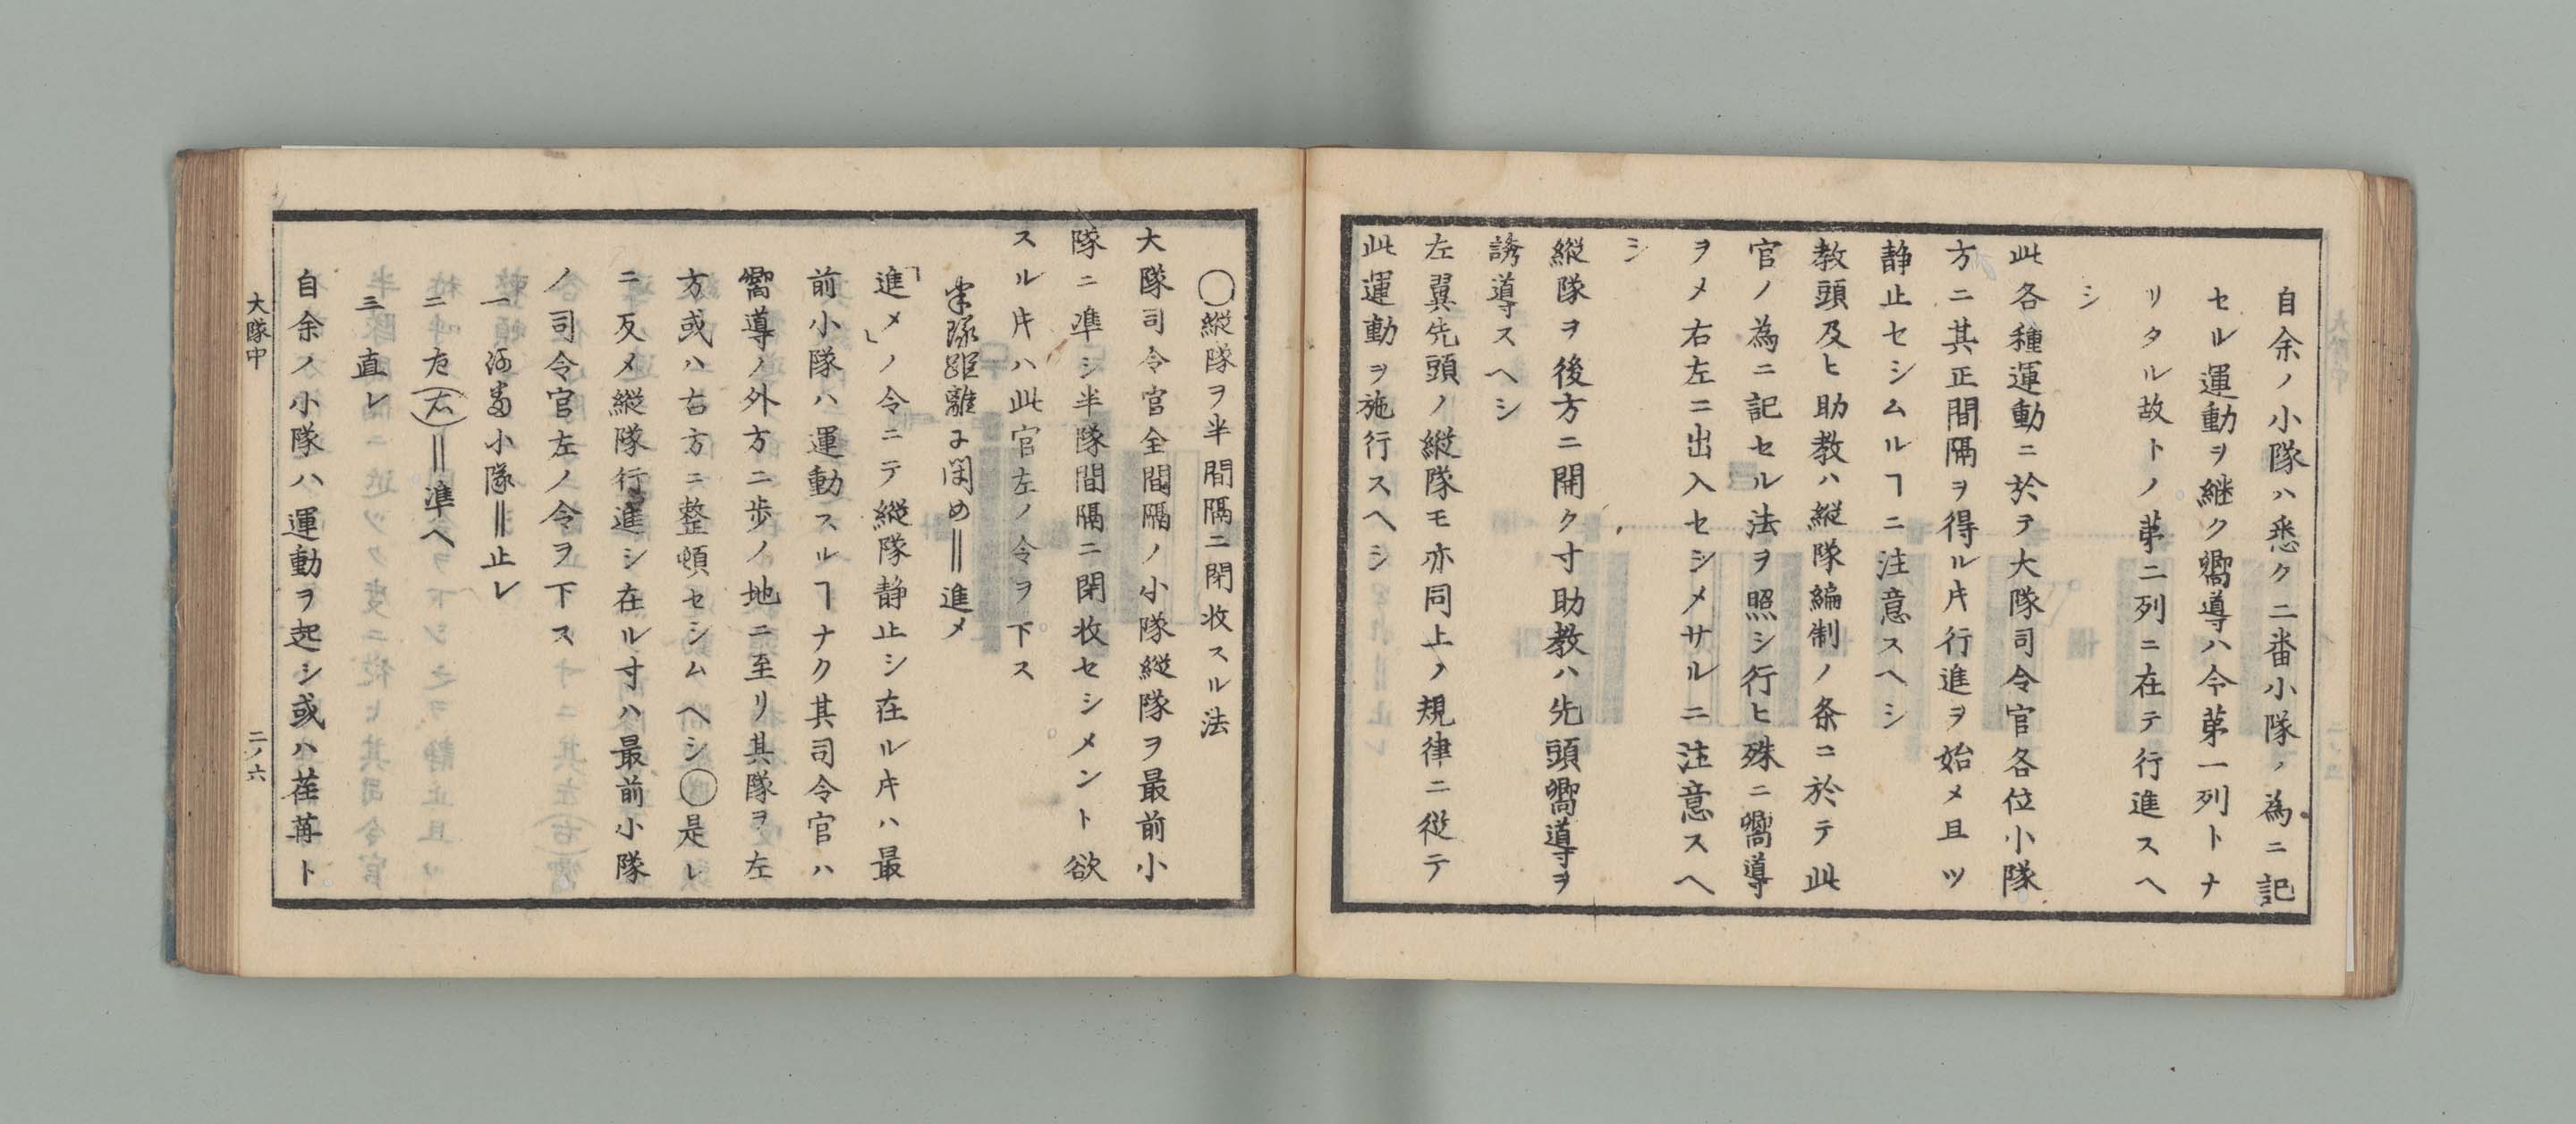 自余ノ小隊ハ悉ク二番小隊ノ為ニ記
セル運動ヲ継ク嚮導ハ今第一列トナ
リタル故トノ第二列ニ在テ行進スヘ
シ
此各種運動ニ於テ大隊司令官各位小隊
方ニ其正間隔ヲ得ル𪜈行進ヲ始メ且ツ
静止セシムルヿニ注意スヘシ
教頭及ヒ助教ハ縦隊編制ノ条ニ於テ此
官ノ為ニ記セル法ヲ照シ行ヒ殊ニ嚮導
ヲメ右左ニ出入セシメサルニ注意スヘ
シ
縦隊ヲ後方ニ開ク寸助教ハ先頭嚮導ヲ
誘導スヘシ
左翼先頭ノ縦隊モ亦同上ノ規律ニ従テ
此運動ヲ施行スヘシ
〇縦隊ヲ半間隔ニ閉收スル法
大隊司令官全間隔ノ小隊縦隊ヲ最前小
隊ニ準シ半隊間隔ニ閉收セシメント欲
スル𪜈ハ此官左ノ令ヲ下ス
半隊距離に閉め‖進メ
「進メ」ノ令ニテ縦隊静止シ在ル𪜈ハ最
前小隊ハ運動スルヿナク其司令官ハ
嚮導ノ外方ニ歩ノ地ニ至リ其隊ヲ左
方或ハ右方ニ整頓セシムヘシ〇是レ
ニ反メ縦隊行進シ在ル寸ハ最前小隊
ノ司令官左ノ令ヲ下ス
一 何番小隊‖止レ
二 左(右)‖準ヘ
三 直レ
自余ノ小隊ハ運動ヲ起シ或ハ荏苒ト
大隊中 二ノ六